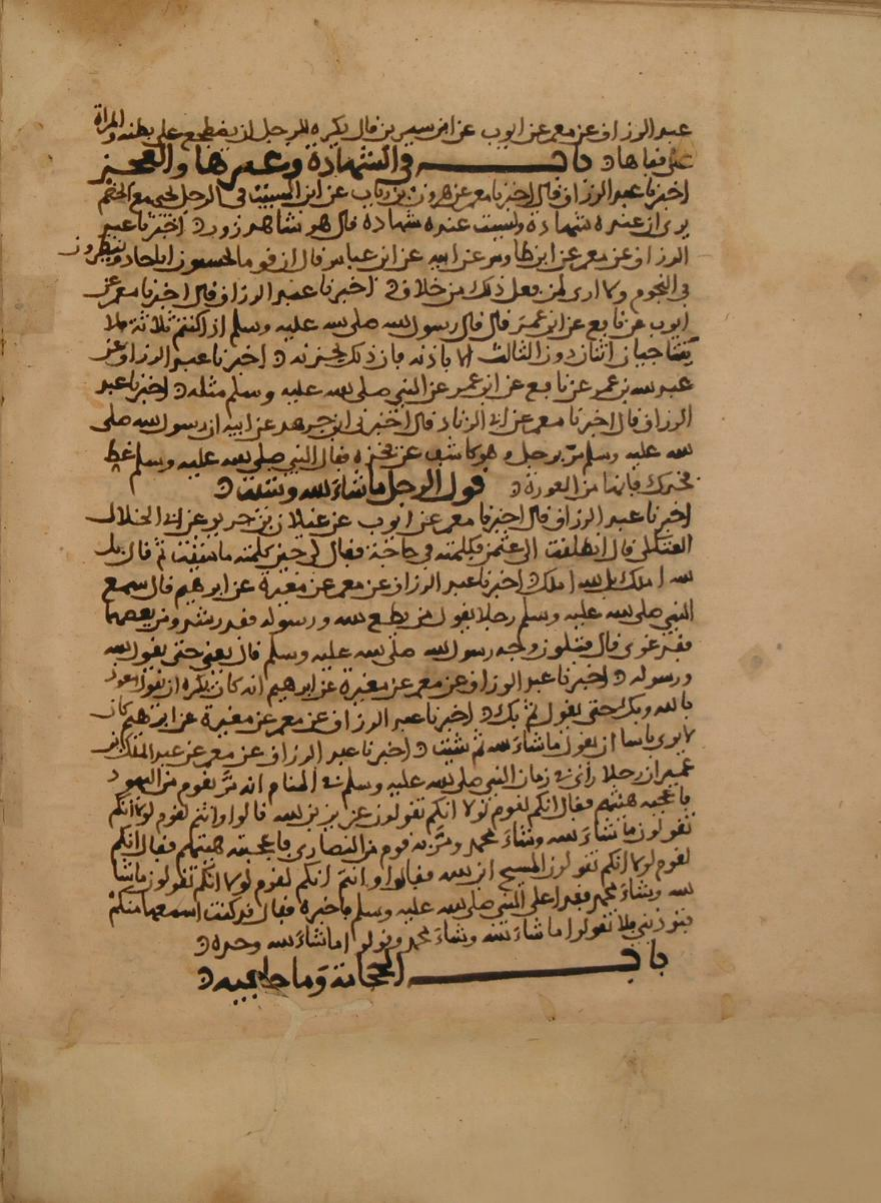 عبد الرزاق عن معمر عن ايوب عن ابن سيرين قال يكره للرجل ان يضطجع على بطنه والمراة
على قفاها
باب في الشهادة وغيرها والفخذ
اخبرنا عبد الرزاق قال اخبرنا معمر عن هرون بن رياب عن ابن المسيب في الرجل يجي مع الخصم
يرى ان عنده شهادة وليست عنده شهادة قال هو شاهد زور اخبرنا عبد
الرزاق عن معمر عن ابن طاوس عن ابيه عن ابن عباس قال ان قوما يحسبون ابا جاد وينظرون
في النجوم ولا ارى لمن فعل ذلك من خلاق اخبرنا عبد الرزاق قال اخبرنا معمر عن
ايوب عن نافع عن ابن عمر قال قال رسول الله صلى الله عليه وسلم اذا كنتم ثلاثة فلا
يتناجيان اثنان دون الثالث الا باذنه فان ذلك يحزنه اخبرنا عبد الرزاق عن
عبد الله بن عمر عن نافع عن ابن عمر عن النبي صلى الله عليه وسلم مثله اخبرنا عبد
الرزاق قال اخبرنا معمر عن ابي الزناد قال اخبرني ابن جرهد عن ابيه ان رسول الله صلى
الله عليه وسلم مر برجل وهو كاشف عن فخذه فقال النبي صلى الله عليه وسلم غط
فخذك فانها من العورة
قول الرجل ما شاء الله وشئت
اخبرنا عبد الرزاق قال اخبرنا معمر عن ايوب عن غيلان بن جرير عن ابي الحلال
العتكي قال انطلقت الى عثمن فكلمته في حاجة فقال لي حين كلمته ما شئت ثم قال بل
الله املك بل الله املك اخبرنا عبد الرزاق عن معمر عن مغيرة عن ابرهيم قال سمع
النبي صلى الله عليه وسلم رجلا يقول من يطع الله ورسوله فقد رشد ومن يعصهما
فقد غوى قال فتلون وجه رسول الله صلى الله عليه وسلم قال يعني حتى يقول الله
ورسوله اخبرنا عبد الرزاق عن معمر عن مغيرة عن ابرهيم انه كان يكره ان يقول اعوذ
بالله وبك حتى يقول ثم بك اخبرنا عبد الرزاق عن معمر عن مغيرة عن ابرهيم كان
لا يرى باسا ان يقول ما شاء الله ثم شيت اخبرنا عبد الرزاق عن معمر عن عبد الملك بن
عمير ان رجلا راى في زمان النبي صلى الله عليه وسلم في المنام انه مر بقوم من اليهود
فاعجبه هيئتهم فقال انكم لقوم لولا انكم تقولون عزير بن الله قالوا وانتم لقوم لولا انكم
تقولون ما شاء الله وشاء محمد ومر به قوم من النصارى فاعجبته هيئتهم فقال انكم
لقوم لولا انكم تقولون المسيح ابن الله فقالوا وانتم انكم لقوم لولا انكم تقولون ما شا
الله وشاء محمد فغدا على النبي صلى الله عليه وسلم فاخبره فقال قد كنت اسمعها منكم
فتوذيني فلا تقولوا ما شاء الله وشاء محمد وقولوا ما شاء الله وحده
باب الحجامة وما جا فيه